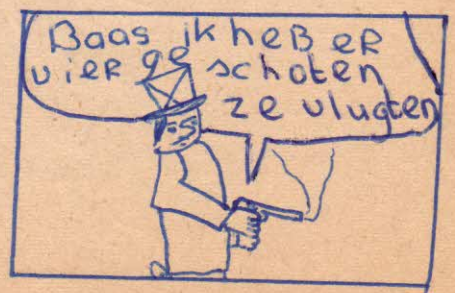 Baas ik heB eR
vieR ge schoten
ze vlugten